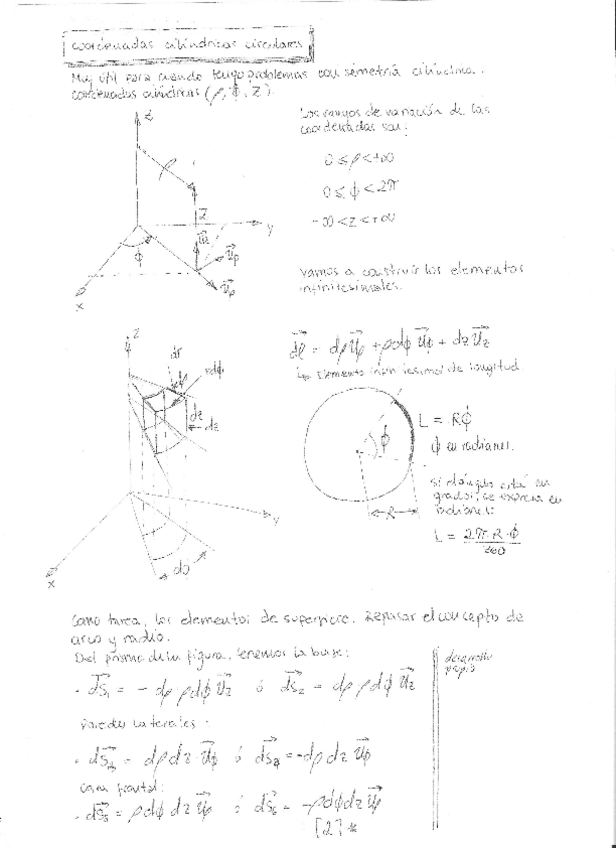 coordenadas cilíndricas circulares
Muy útil para cuando tengo problemas con simetría cilíndrica.
coordenadas cilíndricas (ρ, ϕ, z).
Los rangos de variación de las
coordenadas son:
0 ≤ ρ < +∞
0 ≤ ϕ < 2π
-∞ < z < +∞
z
ρ
z
y
ϕ
x
vamos a construir los elementos
infinitesimales.
z
dr
ρdϕ
dz
dz
y
x
dϕ
dl = dρ u⃗ρ + ρdϕ u⃗ϕ + dz u⃗z
elemento infinitesimal de longitud
ϕ
R
L = Rϕ
ϕ en radianes.
si el ángulo está en
grados, se expresa en
radianes:
L = 2π·R·ϕ/360
Como tarea, los elementos de superficie. Repasar el concepto de
arco y radio.
Del prisma de la figura, tenemos la base:
· d⃗s₁ = - dρ ρdϕ u⃗z ó d⃗s₂ = dρ ρdϕ u⃗z
desarrollo
paredes laterales:
· d⃗s = dρ dz u⃗ϕ ó d⃗s = -dρ dz u⃗ϕ
cara frontal:
· d⃗s₅ = ρdϕ dz u⃗ρ ó d⃗s₆ = -ρdϕdz u⃗ρ
[2]*